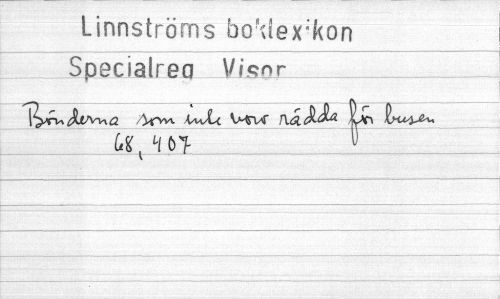 Linnströms boklexikon
Specialreg Visor
Bönderna som inte voro rädda för busen
68, 407